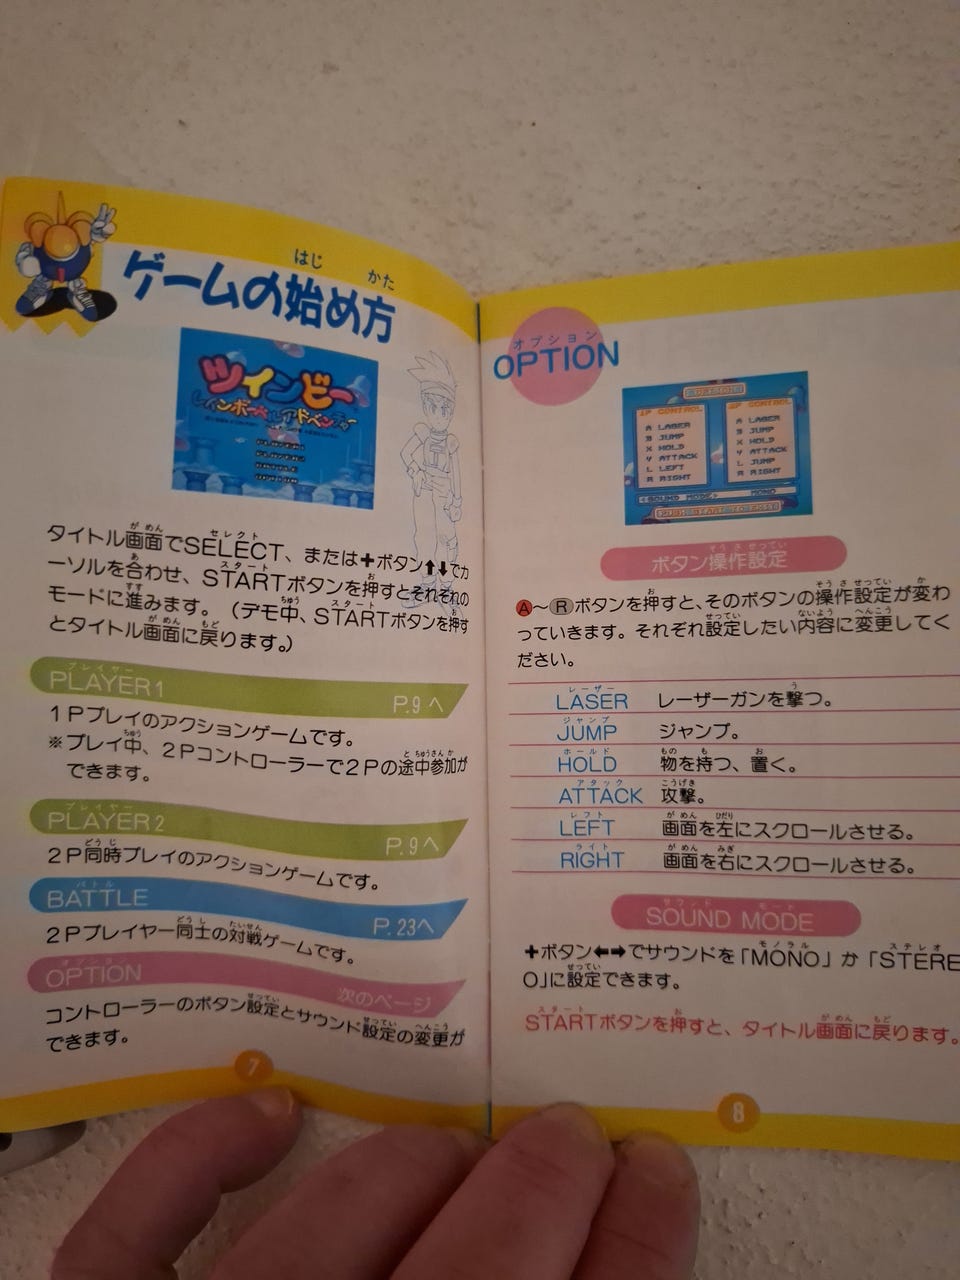 はじ かた
ゲームの始め方
ツインビー
レインボーベルアドベンチャー
PLAYER1
PLAYER2
BATTLE
OPTION
タイトル画面でSELECT、または✚ボタン⬆⬇でカ
ーソルを合わせ、STARTボタンを押すとそれぞれの
モードに進みます。（デモ中、STARTボタンを押す
とタイトル画面に戻ります。）
プレイヤー
PLAYER1 P.9へ
1Pプレイのアクションゲームです。
※プレイ中、2Pコントローラーで2Pの途中参加が
できます。
プレイヤー
PLAYER2 P.9へ
2P同時プレイのアクションゲームです。
バトル
BATTLE P.23へ
2Pプレイヤー同士の対戦ゲームです。
オプション
OPTION 次のページ
コントローラーのボタン設定とサウンド設定の変更が
できます。
7
オプション
OPTION
1P CONTROL 2P CONTROL
A LASER A LASER
B JUMP B JUMP
X HOLD X HOLD
Y ATTACK Y ATTACK
L LEFT L JUMP
R RIGHT R RIGHT
<SOUND MODE> MONO
そうさせってい
ボタン操作設定
Ⓐ〜Ⓡボタンを押すと、そのボタンの操作設定が変わ
っていきます。それぞれ設定したい内容に変更してく
ださい。
レーザー
LASER レーザーガンを撃つ。
ジャンプ
JUMP ジャンプ。
ホールド
HOLD 物を持つ、置く。
アタック
ATTACK 攻撃。
レフト
LEFT 画面を左にスクロールさせる。
ライト
RIGHT 画面を右にスクロールさせる。
サウンド モード
SOUND MODE
✚ボタン⬅➡でサウンドを「MONO」か「STERE
O」に設定できます。
STARTボタンを押すと、タイトル画面に戻ります。
8